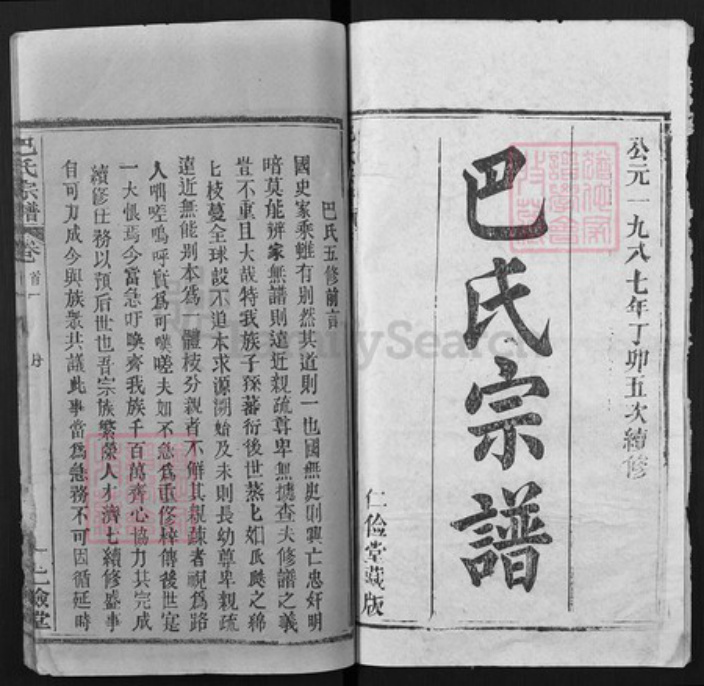 公元一九八七年丁卯五次續修
巴氏宗譜
仁儉堂藏版
巴氏五修前言
國史家乘雖有別然其道則一也國無史則興亡忠奸明
暗莫能辨家無譜則遠近親疏尊卑無據查夫修譜之義
豈不重且大哉特我族子孫蕃衍後世蒸匕如瓜瓞之綿
匕枝蔓全球設不追本求源溯始及末則長幼尊卑親疏
遠近無能别本爲一體枝分親者不解其親疎者視爲路
人嗚呼實爲可嘆嗟夫如不急爲重修梓傳後世寔
一大恨焉今當急吁喚齊我族千百萬齊心協力共完成
續修任務以預后世也吾宗族繁榮人才濟匕續修盛事
自可力成今與族衆共議此事當爲急務不可因循延時
巴氏宗譜
卷首
一
仁儉堂
FamilySearch